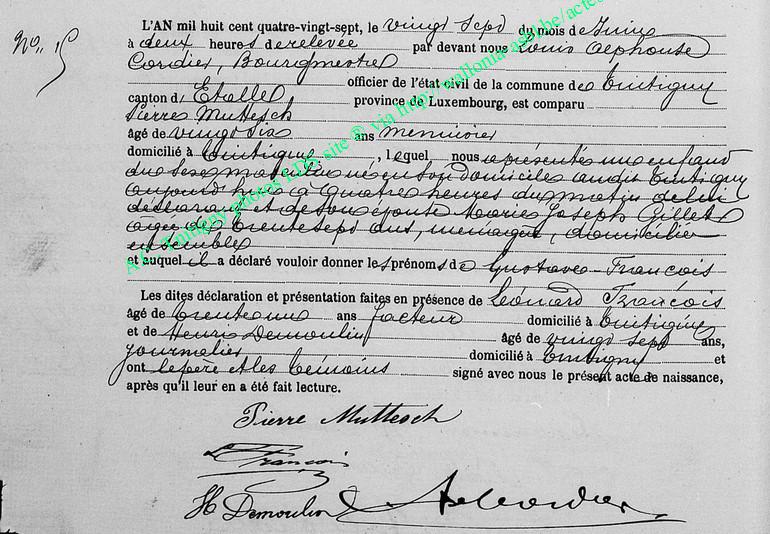 No. 15
L'AN mil huit cent quatre-vingt-sept, le vingt sept du mois de Juin
à deux heures de relevée par devant nous Louis Alphonse
Cordier, Bourgmestre
officier de l'état civil de la commune de Tintigny
canton d'Etalle province de Luxembourg, est comparu
Pierre Muttesch
âgé de vingt six ans menuisier
domicilié à Tintigny, lequel nous a présenté un enfant
du sexe masculin né en son domicile audit Tintigny
aujourd'hui à quatre heures du matin de lui
déclarant et de son épouse Marie Joseph Gillet
âgée de trente sept ans, ménagère, domiciliée
ensemble
et auquel il a déclaré vouloir donner les prénoms de Gustave-François
Les dites déclaration et présentation faites en présence de Léonard François
âgé de trente ans facteur domicilié à Tintigny
et de Henri Demoulin âgé de vingt sept ans,
journalier domicilié à Tintigny et
ont le père et les témoins signé avec nous le présent acte de naissance,
après qu'il leur en a été fait lecture.
Pierre Muttesch
L François
H Demoulin ACordier
AC. Tintigny photos LDS site ® via http://wallonia-asbl.be/actes